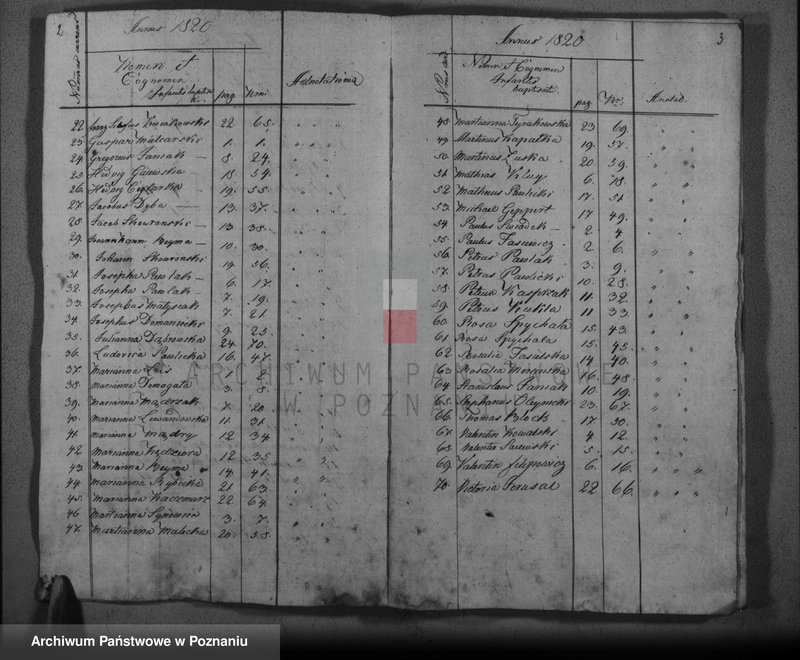 2
Annus 1820
Numerus currens
Nomen et
Cognomen
Infantis baptisati
pag
Num
Adnotationes
22 Xaverius Kowalkowski 22 65.
23 Gaspar Mielcarski 1. 1.
24. Gregorius Janiak 8. 24.
25 Hedwig Gaiewska 18 54
26. Hedwig Ceglarka 19. 55
27. Jacobus Dyba 13. 37.
28. Jacob Skowronski 13. 38.
29. Reyma 10. 30
30. Johann Skowronski 19. 56.
31. Josepha Pawlak 6. 17.
32. Josepha Pawlak 7. 19.
33. Josephus Matysiak 7. 21
34. Josephus Domaniecki 9. 25
35. Julianna Dąbrowska 24. 70.
36. Ludovica Pawlicka 16. 47.
37. Marianna Lis 1. 2.
38. Marianna Domagała 3. 8.
39. Marianna Mądrzak 7. 20
40. Marianna Lewandowska 11. 31.
41. Marianna Mądry 12 34
42 Marianna Kędziora 12 35
43 Marianna Reyma 14. 41.
44 Marianna Rybicka 21 63.
45. Marianna Kaczmarz 22 64.
46 Martianna Synowica 3. 7.
47. Martianna Malicka 20. 58.
3
Annus 1820
Nomen et Cognomen
Infantis
baptisati
pag.
Nr.
Annotat.
48. Martianna Tyrakowska 23 69.
49. Martinus Kapałka 19. 57.
50. Martinus Luska 20 59.
51. Mathias Kley 6. 18.
52 Matheus Pawlicki 17. 51
53. Michael Geppert 17 49.
54 Paulus Swiadek 2. 4
55. Paulus Jasiewicz 2. 6.
56 Petrus Pawlak 3. 9.
57. Petrus Pawlicki 10. 28.
58. Petrus Kasprzak 11 32.
59. Petrus Kukla 11 33
60 Rosa Spychała 15. 43.
61. Rosa Spychala 15. 45.
62 Rosalia Jasińska 14 40.
63 Rosalia Morawska 16. 48
64 Stanislaus Janiak 10. 19.
65. Stephanus Oleynicki 23. 67.
66 Thomas Block 17. 50.
67. Valentin Kowalski 4 12.
68. Valentin 5. 15.
69. Valentin Filipowicz 6. 16.
70. Victoria Jerusal 22 66.
ARCHIWUM PAŃSTWOWE
W POZNANIU
Archiwum Państwowe w Poznaniu